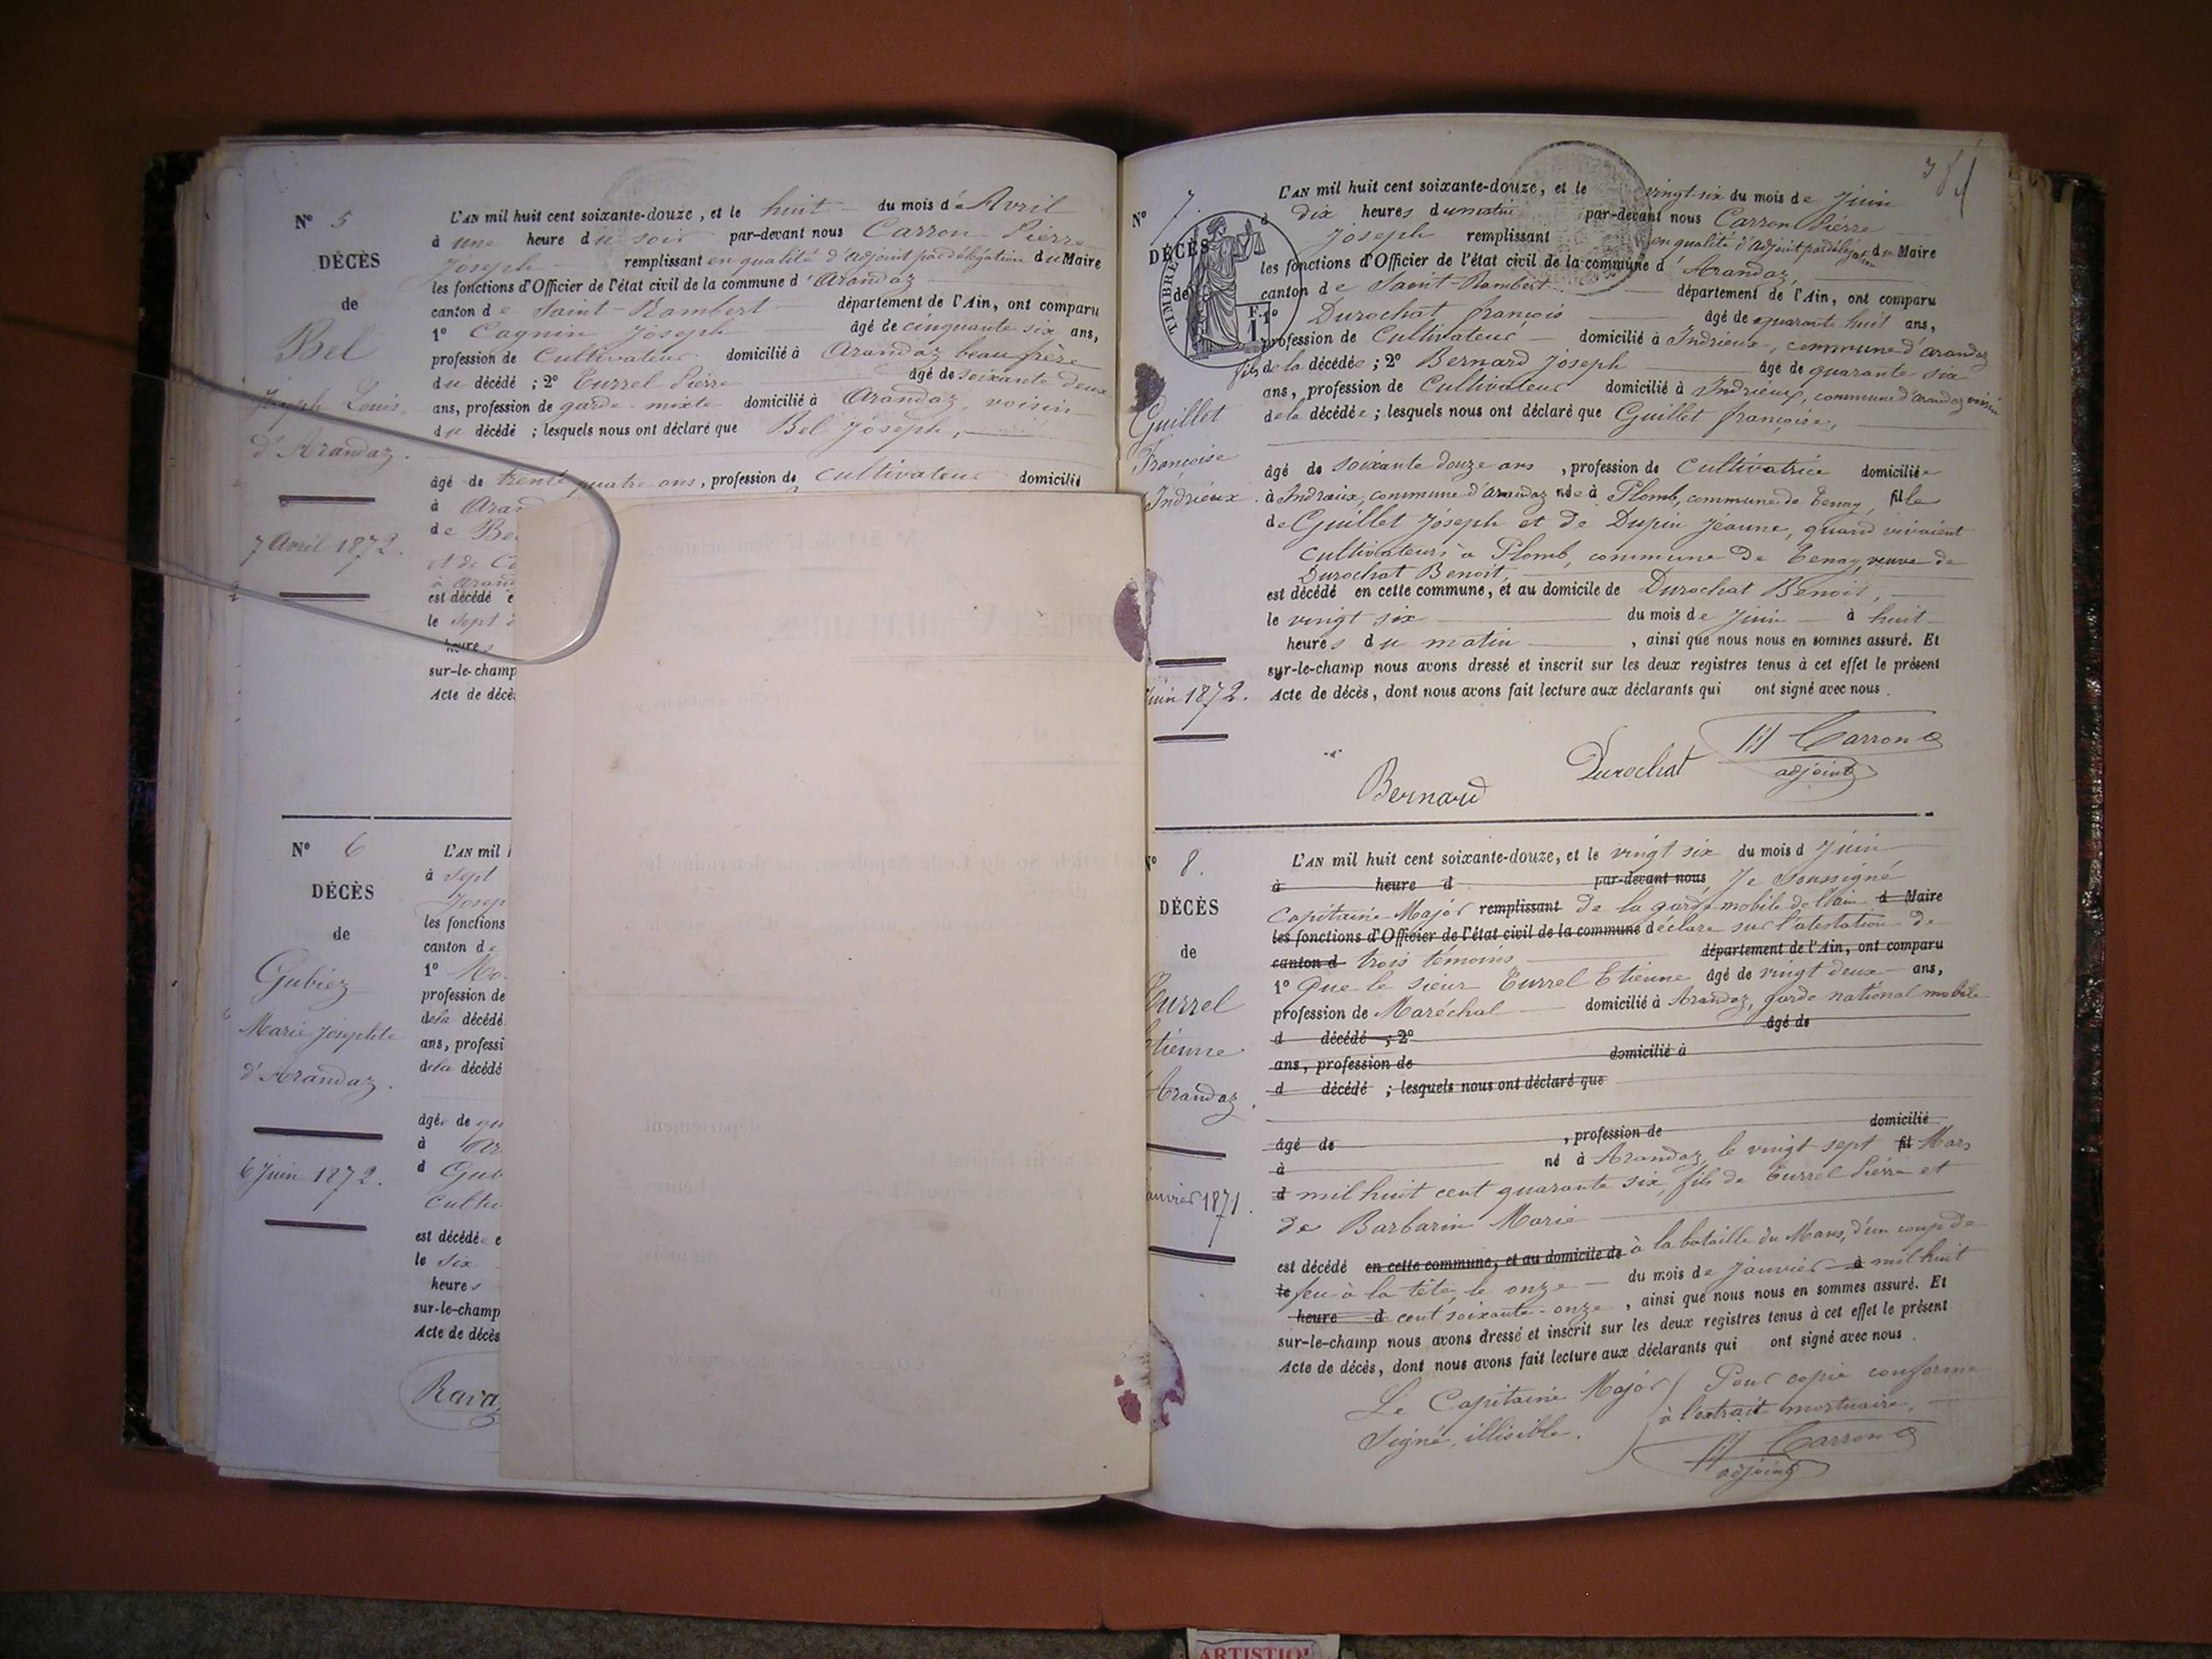 N° 5
DÉCÈS
de
Bel
Joseph Louis,
d'Arandaz.
7 Avril 1872.
L'AN mil huit cent soixante-douze, et le huit du mois d'Avril
à une heure du soir par-devant nous Carron Pierre
Joseph remplissant en qualité d'adjoint par délégation du Maire
les fonctions d'Officier de l'état civil de la commune d'Arandaz
canton de Saint-Rambert département de l'Ain, ont comparu
1° Cagnin Joseph âgé de cinquante six ans,
profession de Cultivateur domicilié à Arandaz beau frère
du décédé ; 2° Turrel Pierre âgé de soixante deux
ans, profession de garde-mixte domicilié à Arandaz, voisin
du décédé ; lesquels nous ont déclaré que Bel Joseph,
âgé de trente quatre ans, profession de Cultivateur domicilié
à Aran
de Be
et de C
à Aran
est décédé e
le sept
heures
sur-le-champ
Acte de décè
N° 6
DÉCÈS
de
Gubiez
Marie Josephte
d'Arandaz.
6 Juin 1872.
L'AN mil
à sept
Josep
les fonctions
canton de
1° Mo
profession de
de la décédé
ans, professi
de la décédé
âgée de qu
à Ar
d Gub
Cultiv
est décédée e
le six
heures
sur-le-champ
Acte de décès
Rava
384
N° 7.
DÉCÈS
de
TIMBRE
F. 1
Guillet
Françoise
Indrieux.
Juin 1872.
L'AN mil huit cent soixante-douze, et le vingt-six du mois de Juin
à dix heures du matin par-devant nous Carron Pierre
Joseph remplissant en qualité d'adjoint par délégation du Maire
les fonctions d'Officier de l'état civil de la commune d'Arandaz,
canton de Saint-Rambert département de l'Ain, ont comparu
1° Durochat françois âgé de quarante huit ans,
profession de Cultivateur domicilié à Indrieux, commune d'arandaz
fils de la décédée ; 2° Bernard Joseph âgé de quarante six
ans, profession de Cultivateur domicilié à Indrieux, commune d'arandaz voisin
de la décédée ; lesquels nous ont déclaré que Guillet françoise,
âgé de soixante douze ans, profession de Cultivatrice domiciliée
à Indrieux, commune d'arandaz née à Plomb, commune de Tenay, fille
de Guillet Joseph et de Dupin Jeanne, quand vivaient
cultivateurs à Plomb, commune de Tenay, veuve de
Durochat Benoit,
est décédé en cette commune, et au domicile de Durochat Benoit,
le vingt six du mois de Juin à huit
heures du matin, ainsi que nous nous en sommes assuré. Et
sur-le-champ nous avons dressé et inscrit sur les deux registres tenus à cet effet le présent
Acte de décès, dont nous avons fait lecture aux déclarants qui ont signé avec nous.
Bernard Durochat Carron
adjoint
N° 8.
DÉCÈS
de
Turrel
Etienne
Arandaz.
Janvier 1871.
L'AN mil huit cent soixante-douze, et le vingt six du mois d Juin
à heure d par-devant nous, Je Soussigné
Capitaine-Major remplissant de la garde mobile de l'ain d Maire
les fonctions d'Officier de l'état civil de la commune déclare sur l'atestation de
canton d trois témoins département de l'Ain, ont comparu
1° Que le sieur Turrel Etienne âgé de vingt deux ans,
profession de Maréchal domicilié à Arandaz, garde national mobile
d décédé ; 2° âgé de
ans, profession de domicilié à
d décédé ; lesquels nous ont déclaré que
âgé de , profession de domicilié
à né à Arandaz, le vingt sept fil Mars
d mil huit cent quarante six, fils de Turrel Pierre et
de Barbarin Marie
est décédé en cette commune, et au domicile de à la bataille du Mans, d'un coup de
le feu à la tête, le onze du mois de Janvier à mil huit
heure d cent soixante-onze, ainsi que nous nous en sommes assuré. Et
sur-le-champ nous avons dressé et inscrit sur les deux registres tenus à cet effet le présent
Acte de décès, dont nous avons fait lecture aux déclarants qui ont signé avec nous.
Le Capitaine Major
Signé, illisible.
Pour copie conforme
à l'extrait mortuaire,
Carron
adjoint
ARTISTIQ